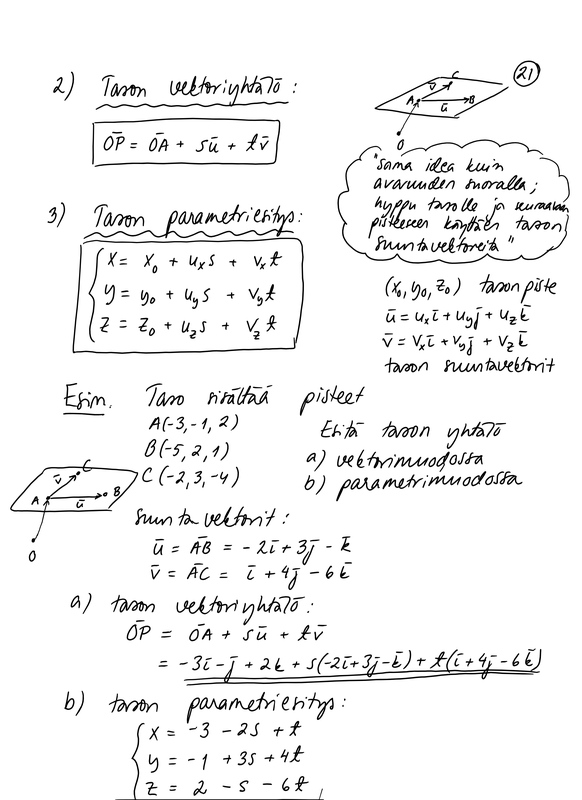 21
2) Tason vektoriyhtälö :
C
v̄
A
ū
B
O
O̅P̅ = O̅A̅ + sū + tv̄
"sama idea kuin
avaruuden suoralla;
hyppy tasolle ja seuraavaan
pisteeseen käyttäen tason
suuntavektoreita"
3) Tason parametriesitys:
x = x₀ + uₓs + vₓt
y = y₀ + u_y s + v_y t
z = z₀ + u_z s + v_z t
(x₀, y₀, z₀) tason piste
ū = uₓī + u_y j̄ + u_z k̄
v̄ = vₓī + v_y j̄ + v_z k̄
tason suuntavektorit
Esim. Taso sisältää pisteet
A(-3,-1, 2)
B(-5, 2, 1)
C(-2, 3, -4)
Esitä tason yhtälö
a) vektorimuodossa
b) parametrimuodossa
C
v̄
A
ū
B
O
suuntavektorit :
ū = A̅B̅ = -2ī + 3j̄ - k̄
v̄ = A̅C̅ = ī + 4j̄ - 6k̄
a) tason vektoriyhtälö :
O̅P̅ = O̅A̅ + sū + tv̄
= -3ī - j̄ + 2k̄ + s(-2ī+3j̄-k̄) + t(ī+4j̄-6k̄)
b) tason parametriesitys :
x = -3 - 2s + t
y = -1 + 3s + 4t
z = 2 - s - 6t